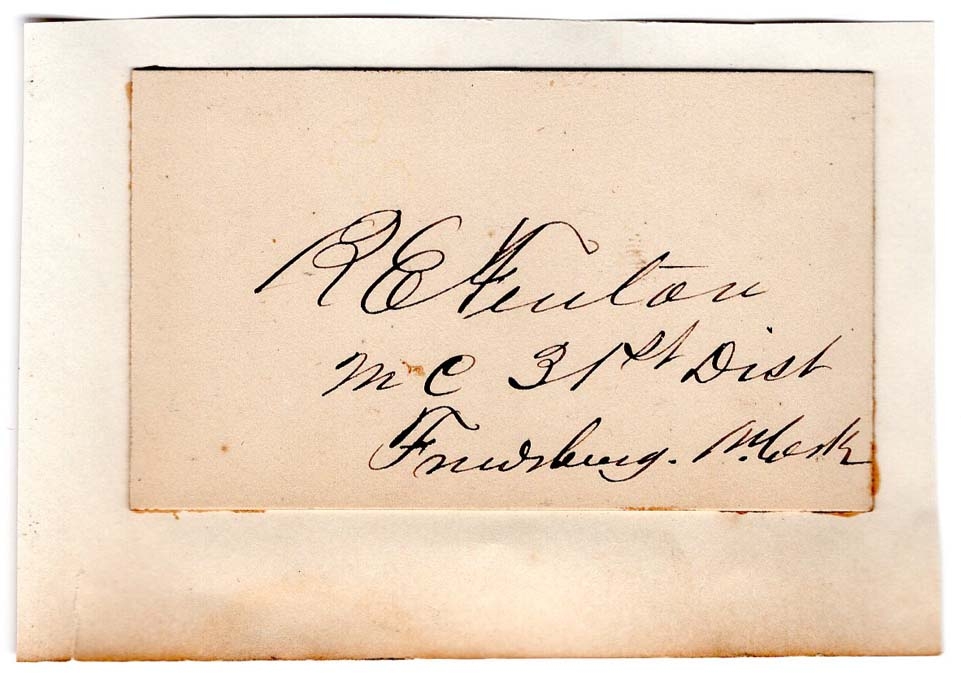 R E Fenton
M C 31st Dist
Frewsburg. N. York